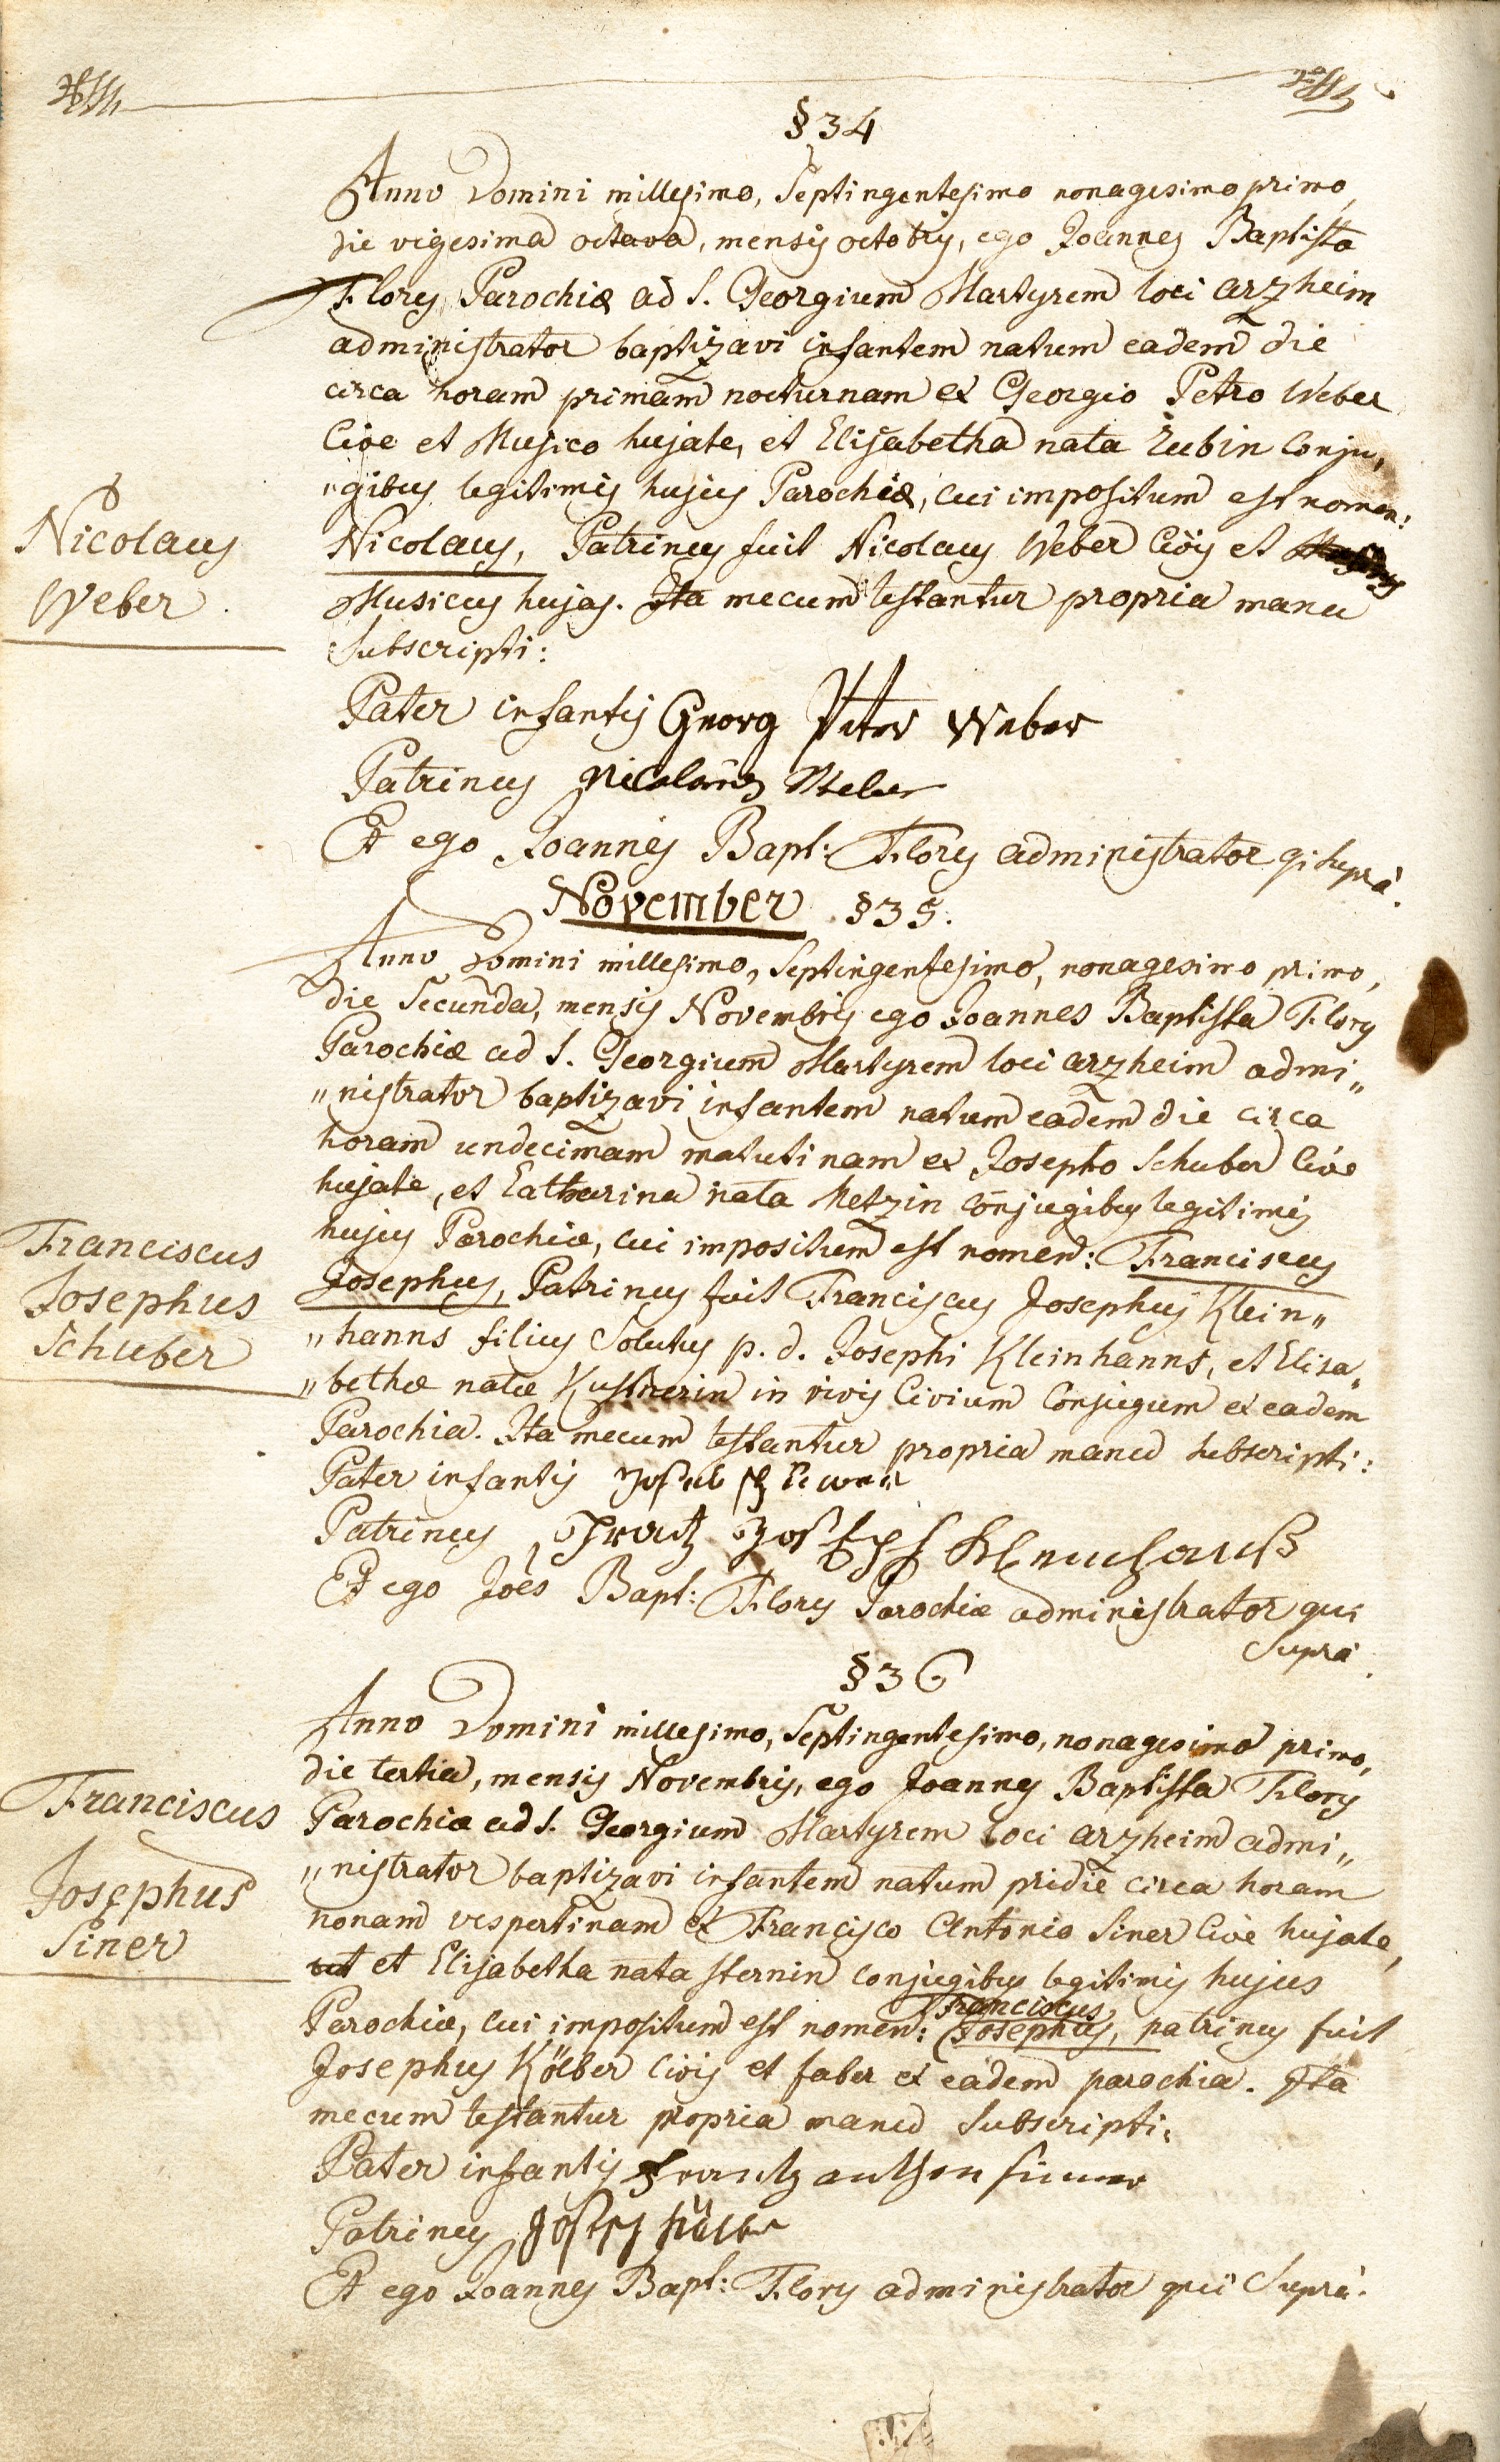 § 34
Anno Domini millesimo, Septingentesimo nonagesimo primo,
die vigesima octava, mensis octobris, ego Joannes Baptista
Flory Parochiæ ad S. Georgium Martyrem loci arzheim
administrator baptizavi infantem natum eadem die
circa horam primam nocturnam ex Georgio Petro Weber
Cive et Musico hujate, et Elisabetha nata Rubin Conju„
„gibus legitimis hujus Parochiæ, cui impositum est nomen:
Nicolaus
Weber
Nicolaus, Patrinus fuit Nicolaus Weber Civis et
Musicus hujas. Ita mecum testantur propria manu
Subscripti:
Pater infantis Georg Peter Weber
Patrinus Nicolaus Weber
Et ego Joannes Bapt: Flory administrator qi supra.
November § 35.
Anno Domini millesimo, Septingentesimo, nonagesimo primo,
die Secunda, mensis Novembris ego Joannes Baptista Flory
Parochiæ ad S. Georgium Martyrem loci arzheim admi„
„nistrator baptizavi infantem natum eadem die circa
horam undecimam matutinam ex Josepho Schuber Cive
hujate, et Catharina nata Metzin conjugibus legitimis
hujus Parochiæ, cui impositum est nomen: Franciscus
Franciscus
Josephus
Schuber
Josephus, Patrinus fuit Franciscus Josephus Klein„
„hanns filius Solutus p. d. Josephi Kleinhanns, et Elisa„
„bethæ natæ Kustnerin in vivis Civium Conjugum ex eadem
Parochia. Ita mecum testantur propria manu subscripti:
Pater infantis
Patrinus Frantz Joseph
Et ego Joes Bapt: Flory Parochiæ administrator qui
Supra.
§ 36
Anno Domini millesimo, Septingentesimo, nonagesimo primo,
die tertia, mensis Novembris, ego Joannes Baptista Flory
Franciscus
Josephus
Siner
Parochiæ ad S. Georgium Martyrem loci arzheim admi„
„nistrator baptizavi infantem natum pridie circa horam
nonam vespertinam ex Francisco Antonio Siner Cive hujate,
et Elisabetha nata Sternin conjugibus legitimis hujus
Franciscus
Parochiæ, cui impositum est nomen: Josephus, patrinus fuit
Josephus Kölber Civis et faber ex eadem parochia. Ita
mecum testantur propria manu Subscripti:
Pater infantis Frantz anthon siner
Patrinus Joseph
Et ego Joannes Bapt: Flory administrator qui Supra.